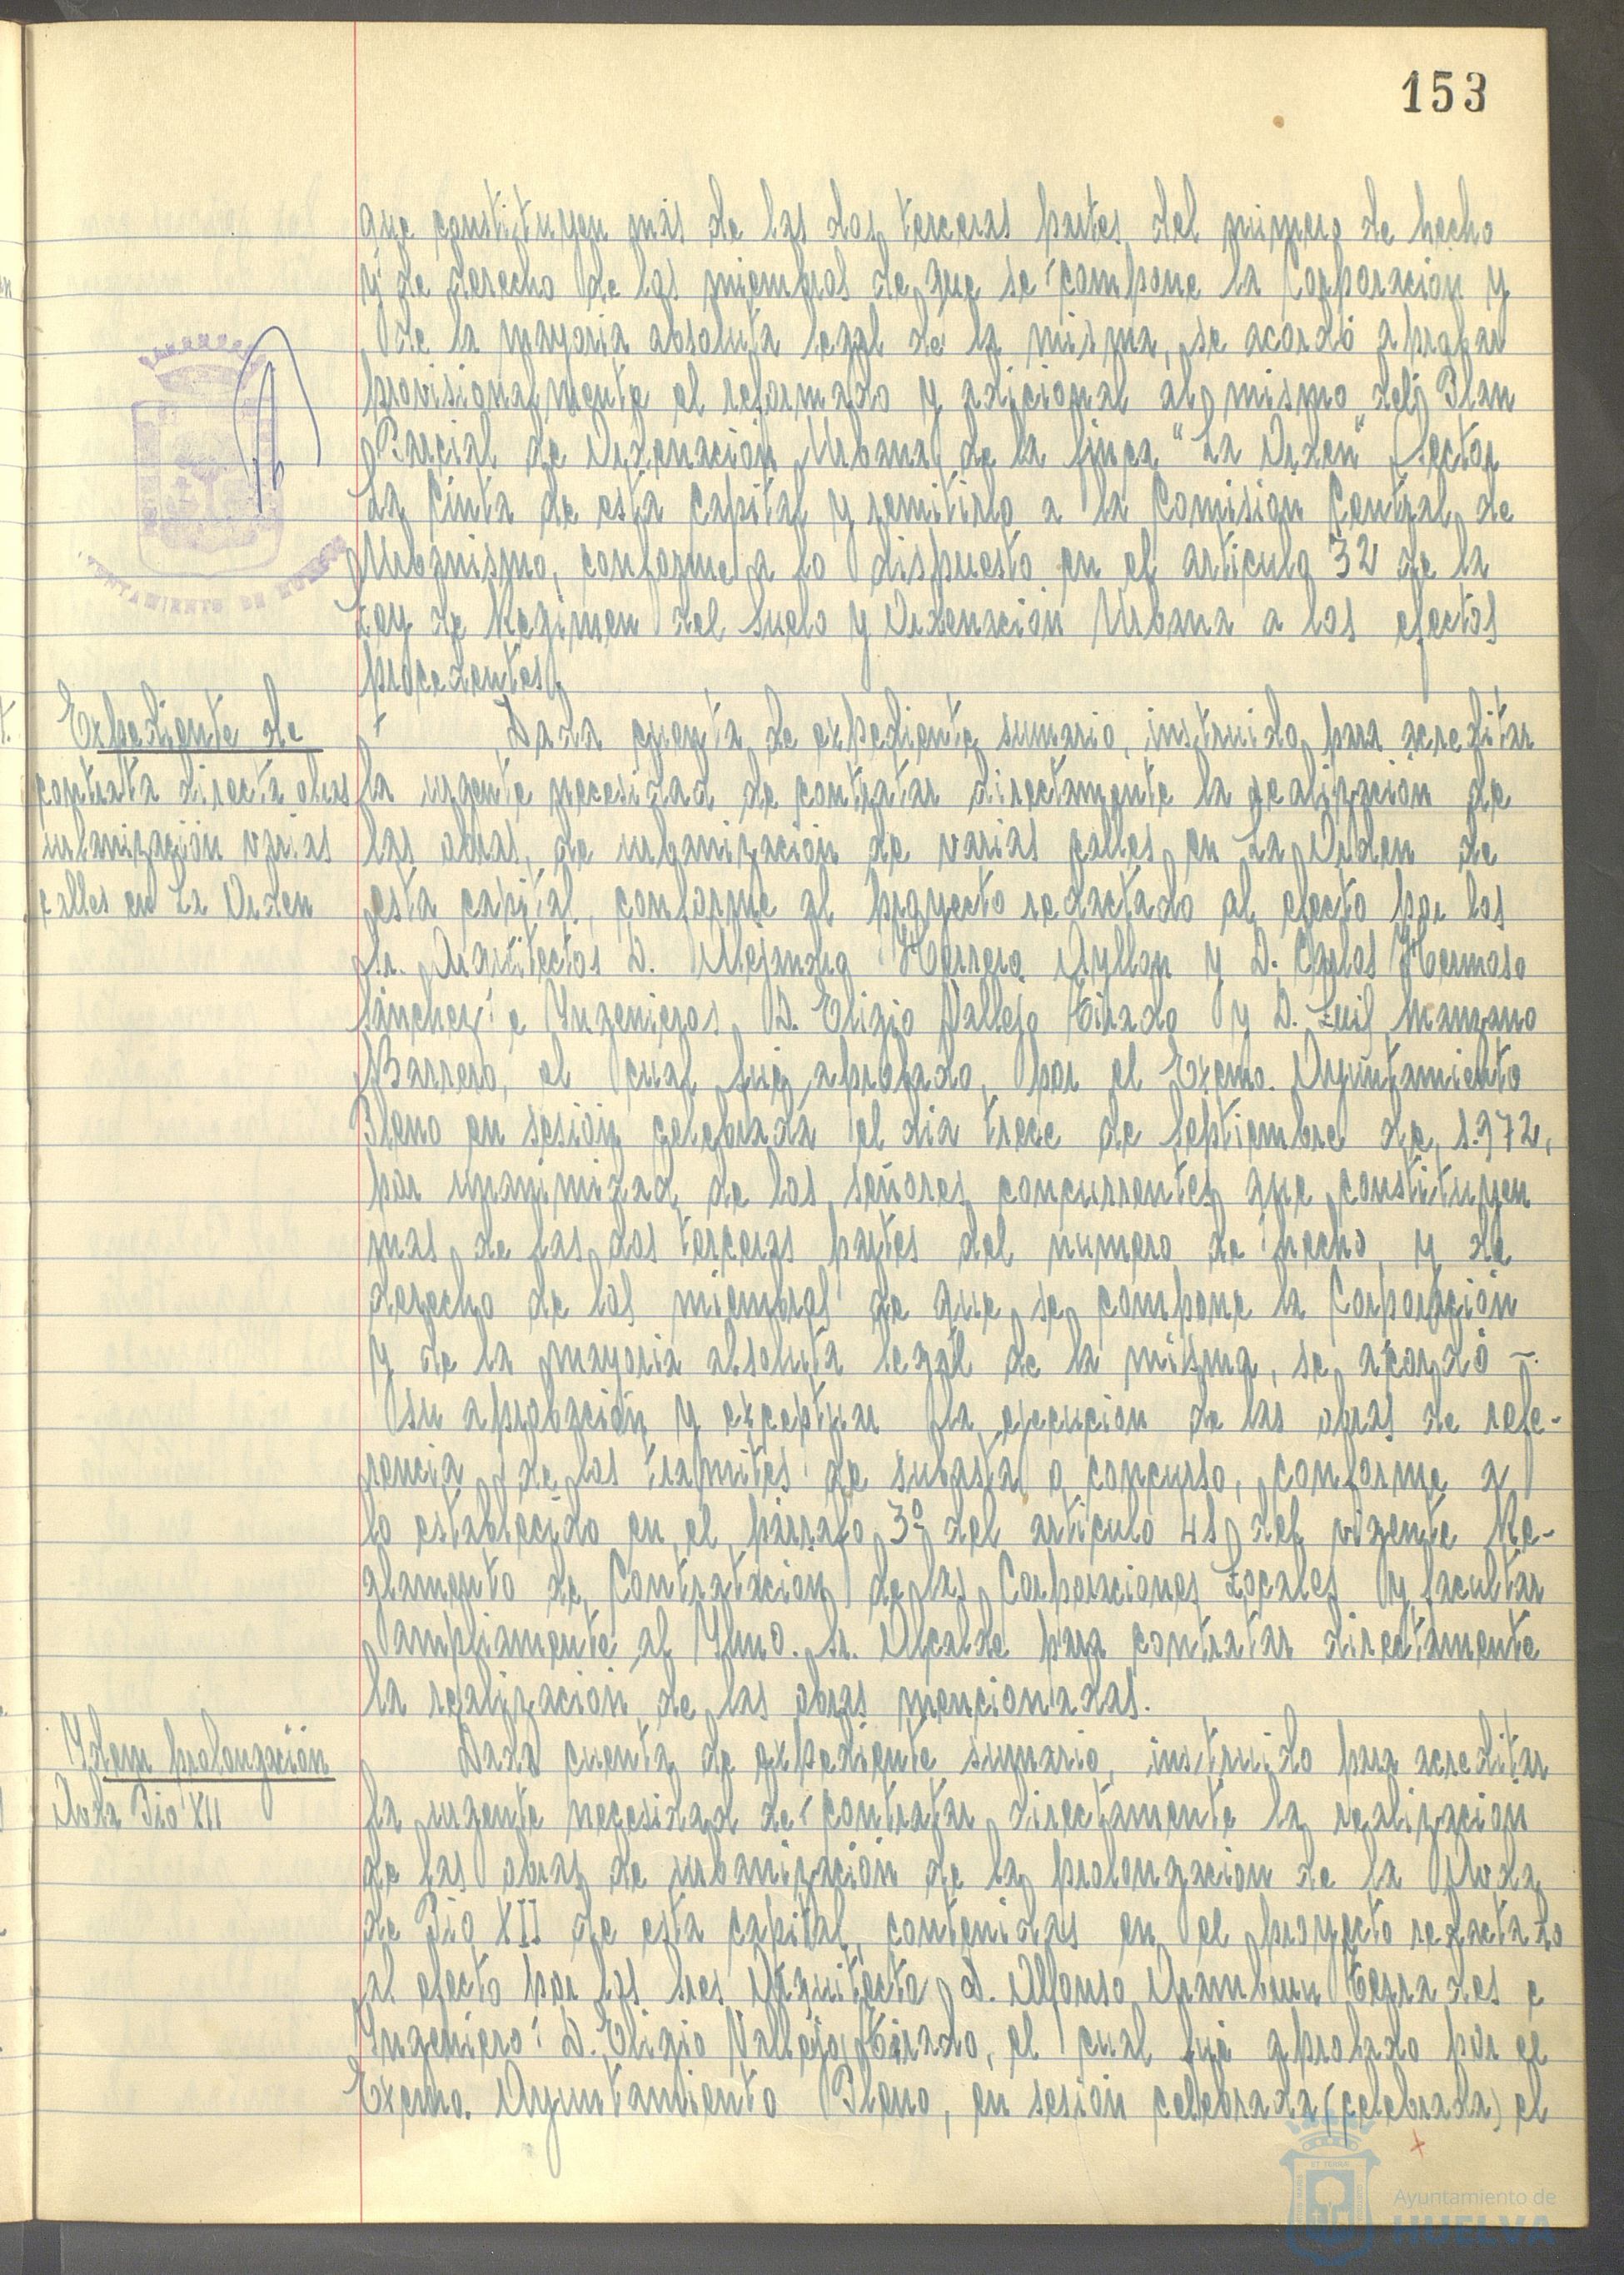 153
que constituyen más de las dos terceras partes del número de hecho
y de derecho de los miembros de que se compone la Corporación y
de la mayoria absoluta legal de la misma, se acordó aprobar
provisionalmente el reformado y adicional al mismo del Plan
Parcial de Ordenación Urbana de la finca "La Orden" Sector
La Cinta de esta Capital y remitirlo a la Comisión Central de
Urbanismo, conforme a lo dispuesto en el articulo 32 de la
Ley de Regimen del Suelo y Ordenación Urbana a los efectos
procedentes.
AYUNTAMIENTO DE HUELVA
Expediente de
contrata directa obras
urbanización varias
calles en La Orden
Dada cuenta de expediente sumario, instruido para acreditar
la urgente necesidad de contratar directamente la realización de
las obras, de urbanización de varias calles en La Orden de
esta capital, conforme al proyecto redactado al efecto por los
Sr. Arquitectos D. Alejandro Herrero Ayllon y D. Carlos Hermoso
Sánchez e Ingenieros D. Eligio Vallejo Tirado y D. Luis Manzano
Barrero, el cual fué aprobado, por el Excmo. Ayuntamiento
Pleno en sesión celebrada el dia trece de septiembre de 1.972,
por unanimidad de los señores concurrentes que constituyen
mas de las dos terceras partes del numero de hecho y de
derecho de los miembros de que se compone la Corporación
y de la mayoria absoluta legal de la misma, se acordó -
su aprobación y exceptuar la ejecucion de las obras de refe-
rencia de los tramites de subasta o concurso, conforme a
lo establecido en el párrafo 3º del articulo 41 del vigente Re-
glamento de Contratación de las Corporaciones Locales y facultar
ampliamente al Ilmo. Sr. Alcalde para contratar directamente
la realización de las obras mencionadas.
Idem prolongación
Avda Pio XII
Dada cuenta de expediente sumario, instruido para acreditar
la urgente necesidad de contratar directamente la realizacion
de las obras de urbanización de la prolongacion de la Avda
de Pio XII de esta capital, contenidas en el proyecto redactado
al efecto por los Sres Arquitecto D. Alfonso Aramburu Terrades e
Ingeniero D. Eligio Vallejo Tirado, el cual fué aprobado por el
Excmo. Ayuntamiento Pleno, en sesión celebrada (celebrada) el
Ayuntamiento de
HUELVA